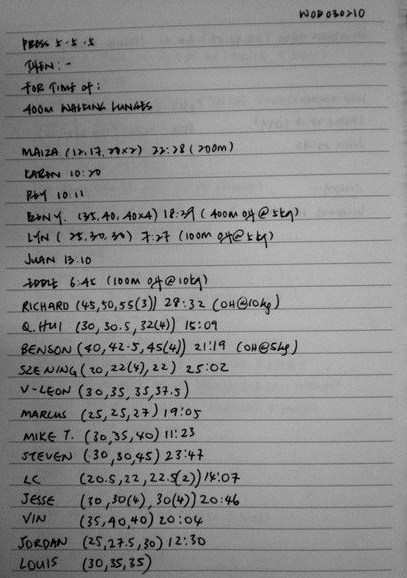 WOD 030210
PRESS 5-5-5
THEN:-
FOR TIME OF:
400M WALKING LUNGES
MAIZA (12,17,20x2) 22:28 (200m)
KAREN 10:20
ROY 10:11
BEN Y. (35,40,40x4) 18:29 (400m OH@5kg)
LYN (25,30,30) 7:27 (100m OH@5kg)
JUAN 13:10
EDDIE 6:45 (100m OH@10kg)
RICHARD (45,50,55(3)) 28:32 (OH@10kg)
Q.HUI (30,30.5,32(4)) 15:09
BENSON (40,42.5,45(4)) 21:19 (OH@5kg)
SZE NING (20,22(4),22) 25:02
V-LEON (30,35,35,37.5)
MARCUS (25,25,27) 19:05
MIKE T. (30,35,40) 11:23
STEVEN (30,30,45) 23:47
LC (20.5,22,22.5(2)) 14:07
JESSE (30,30(4),30(4)) 20:46
VIN (35,40,40) 20:04
JORDAN (25,27.5,30) 12:30
LOUIS (30,35,35)